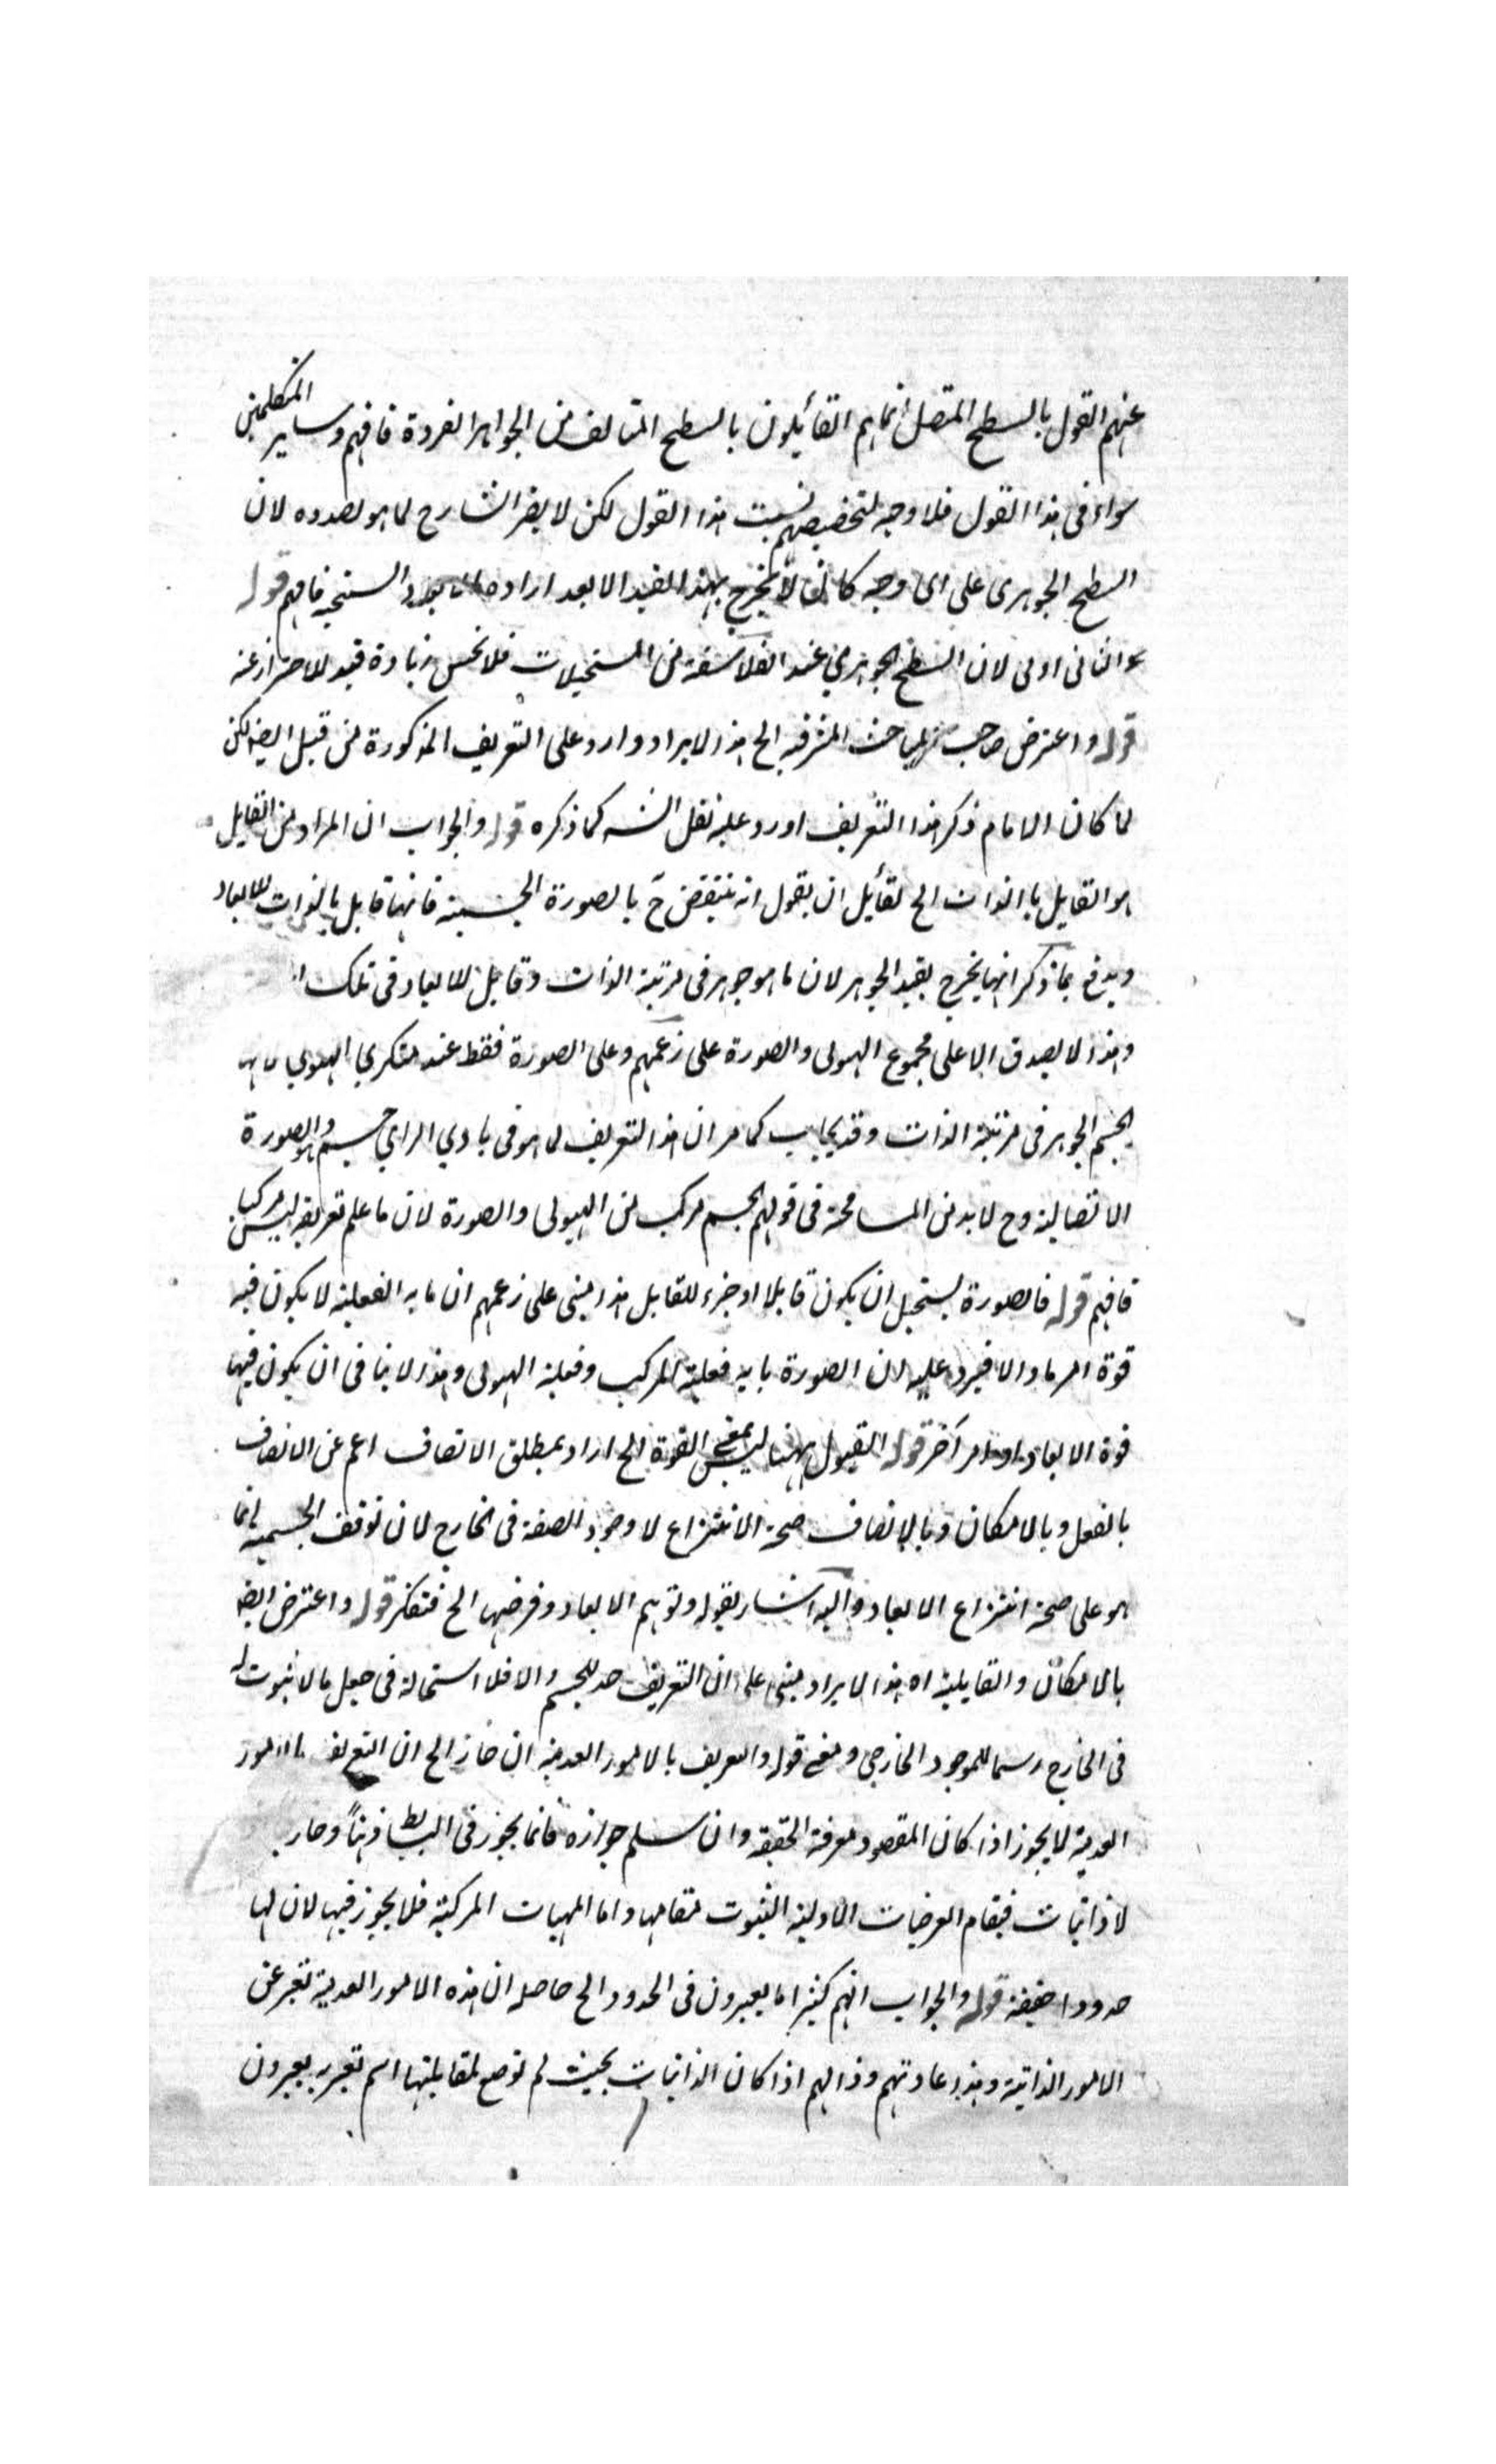 عنهم القول بالسطح المتصل انما هم القائلون بالسطح المتالف من الجواهر الفردة فافهم وساير المتكلمين
سواء فى هذا القول فلا وجه لتخصيصهم نسبت هذا القول لكن لا يضر الشارح لما هو بصدده لان
السطح الجوهرى على اى وجه كان لا يخرج بهذا القيد الا بعد ارادة فافهم قوله
والثانى اولى لان السطح الجوهري عند الفلاسفة من المستحيلات فلا يحسن زيادة قيد للاحتراز عنه
قوله واعترض صاحب المباحث المشرقية الخ هذا الايراد وارد على التعريف المذكورة من قبل ايضه لكن
لما كان الامام ذكر هذا التعريف اورد عليه نقل الشه كما ذكره قوله والجواب ان المراد من القابل
هو القابل بالذات الخ لقائل ان يقول انه ينتقض ح بالصورة الجسمية فانها قابل بالذات للابعاد
ويدفع بما ذكر انها يخرج بقيد الجوهر لان ما هو جوهر فى مرتبة الذات وقابل للابعاد فى تلك
وهذا لا يصدق الا على مجموع الهيولى والصورة على زعمهم وعلى الصورة فقط عند منكري الهيولي
الجسم الجوهر فى مرتبة الذات وقد يجاب كما مر ان هذا التعريف لما هو فى بادي الراي جسم وهو الصورة
الاتصالية وح لا بد من المسامحة فى قولهم الجسم مركب من الهيولى والصورة لان ما علم تعريفه ليس مركبا
فافهم قوله فالصورة يستحيل ان يكون قابلا او جزء للقابل هذا مبنى على زعمهم ان ما به الفعلية لا يكون فيه
قوة امر ما والا فيرد عليه لان الصورة ما به فعلية المركب وفعلية الهيولى وهذا لا ينافى ان يكون فيها
قوة الابعاد او امر آخر قوله القبول ههنا ليس بمعنى القوة الخ اراد بمطلق الاتصاف اعم عن الاتصاف
بالفعل وبالامكان وبالاتصاف صحة الانتزاع لا وجود الصفة فى الخارج لان توقف الجسمية انما
هو على صحة انتزاع الابعاد واليه اشار بقوله وتوهم الابعاد وفرضها الخ فتفكر قوله واعترض ايضه
بالامكان والقابلية اه هذا الايراد مبنى على ان التعريف حد للجسم والا فلا استحالة فى جعل ما لا ثبوت له
فى الخارج رسما للموجود الخارجى ومعنى قوله والتعريف بالامور العدمية ان جاز الخ ان التعريف بالامور
العدمية لا يجوز اذا كان المقصود معرفة الحقيقة وان سلم جوازه فانما يجوز فى البسائط ذهنا وخارجا
لا ذاتيات فيقام العرضيات الاولية الثبوت مقامها واما المهيات المركبة فلا يجوز فيها لان لها
حدودا حقيقة قوله والجواب انهم كثيرا ما يعبرون فى الحدود الخ حاصله ان هذه الامور العدمية تعبر عن
الامور الذاتية وهذا عادتهم ودابهم اذا كان الذاتيات بحيث لم توضع لمقابلتها اسم تعبر به يعبرون